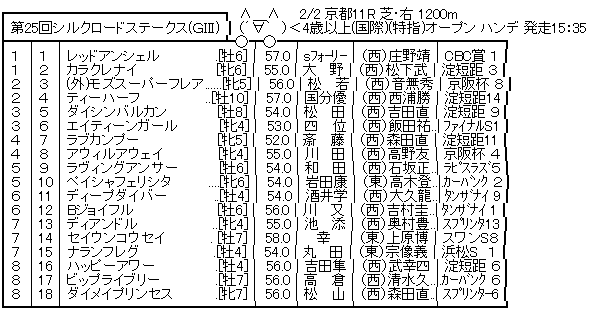 ∧ ∧ 2/2 京都11R 芝・右 1200m
第25回シルクロードステークス(GIII) ( ´∀`) <4歳以上(国際)(特指)オープン ハンデ 発走15:35
1 1 レッドアンシェル [牡6] 57.0 sフォーリー (西)庄野靖 CBC賞 1
1 2 カラクレナイ [牝6] 55.0 大 野 (西)松下武 淀短距 3
2 3 (外)モズスーパーフレア....[牝5] 56.0 松 若 (西)音無秀 京阪杯 8
2 4 ティーハーフ ..[牡10] 57.0 国分優 (西)西浦勝 淀短距14
3 5 ダイシンバルカン [牡8] 54.0 松 田 (西)吉田直 淀短距 9
3 6 エイティーンガール [牝4] 53.0 四 位 (西)飯田祐.. ファイナルS1
4 7 ラブカンプー [牝5] 52.0 斎 藤 (西)森田直 淀短距11
4 8 アウィルアウェイ [牝4] 55.0 川 田 (西)高野友 京阪杯 4
5 9 ラヴィングアンサー [牡6] 54.0 和 田 (西)石坂正.. ラピスラズ5
5 10 ペイシャフェリシタ ....[牝6] 54.0 岩田康 (東)高木登.. カーバンク 2
6 11 ディープダイバー ..[牡4] 54.0 酒井学 (西)大久龍.. タンザナイ 9
6 12 Bジョイフル [牡6] 56.0 川 又 (西)吉村圭.. タンザナイ 1
7 13 ディアンドル [牝4] 55.0 池 添 (西)奥村豊.. スプリンタ13
7 14 セイウンコウセイ .[牡7] 58.0 幸 (東)上原博 スワンS8
7 15 ナランフレグ [牡4] 54.0 丸 田 (東)宗像義 浜松S 1
8 16 ハッピーアワー [牡4] 56.0 吉田隼 (西)武幸四 淀短距 6
8 17 ビップライブリー [牡7] 56.0 高 倉 (西)清水久.. カーバンク 6
8 18 ダイメイプリンセス ..[牝7] 56.0 松 山 (西)森田直.. スプリンター6